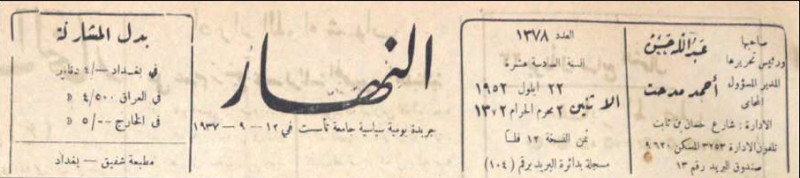 صاحبها
ورئيس تحريرها
عبد الله حسن
المدير المسؤول
المحامي
أحمد مدحت
الادارة : شارع حسان بن ثابت
تلفون الادارة ٣٢٥٣ المسكن ٩٦٢٠
صندوق البريد رقم ١٣
العدد ١٣٧٨
السنة السادسة عشرة
الاثنين
٢٢ ايلول ١٩٥٢
٣ محرم الحرام ١٣٧٢
ثمن النسخة ١٢ فلساً
مسجلة بدائرة البريد برقم (١٠٤)
النهار
جريدة يومية سياسية جامعة تأسست في ١٢ - ٩ - ١٩٣٧
بدل المشاركة
في بغداد ــ/٤ دنانير
في العراق ٤/٥٠٠ »
في الخارج ٥/٠٠ »
مطبعة شفيق - بغداد